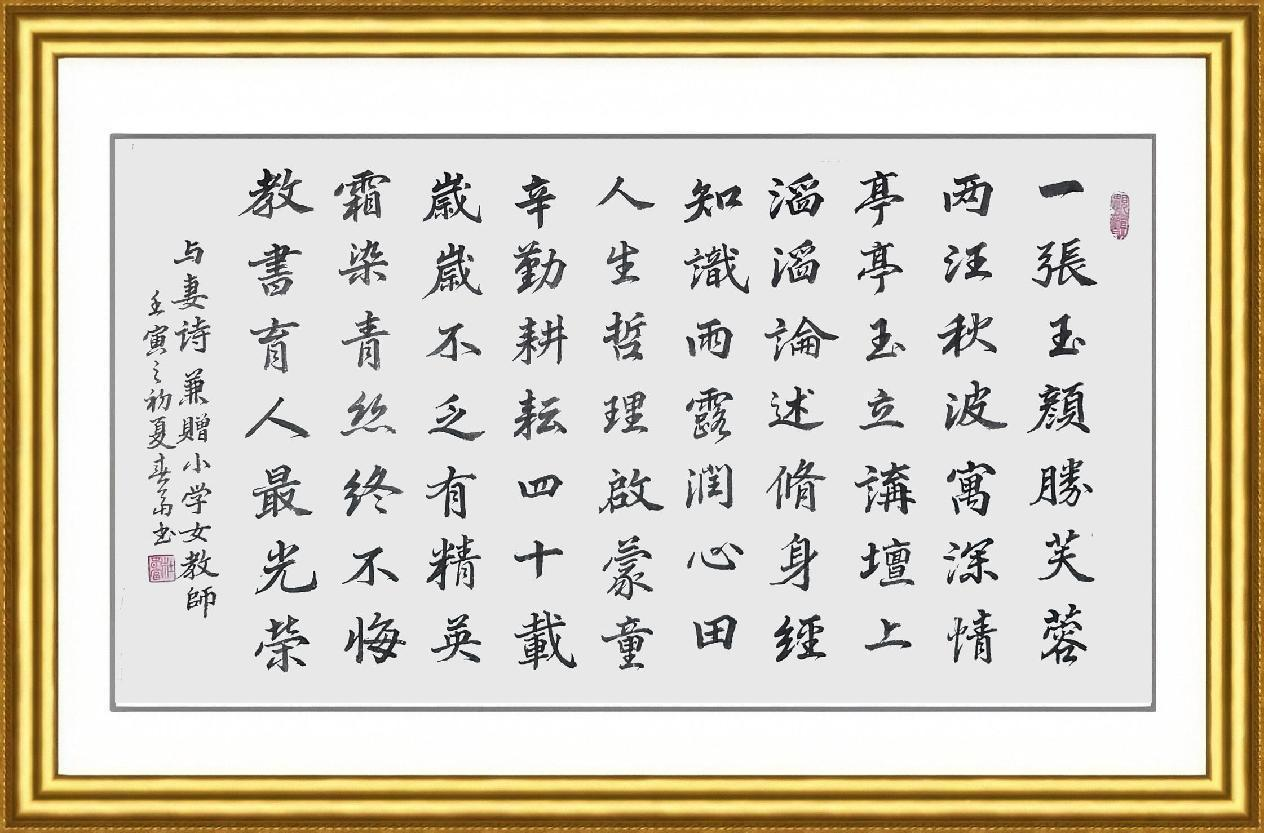 一張玉顏勝芙蓉
两汪秋波寓深情
亭亭玉立講壇上
滔滔論述脩身經
知識雨露潤心田
人生哲理啟蒙童
辛勤耕耘四十載
歲歲不乏有精英
霜染青絲终不悔
教書育人最光榮
与妻诗兼贈小学女教師
壬寅之初夏春富书